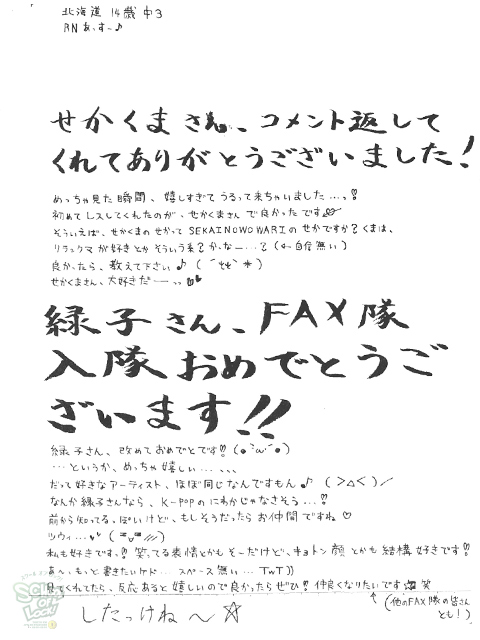 北海道 14歳 中3
RN あ、すー♪
せかくまさん、コメント返して
くれてありがとうございました!
めっちゃ見た瞬間、嬉しすぎてうるって来ちゃいました…っ!
初めてレスしてくれたのが、せかくまさんで良かったです♡
そういえば、せかくまのせかって SEKAI NO OWARI のせかですか? くまは、
リラックマが好きとかそういう系? かなー…? (←自信無い)
良かったら、教えて下さい♪
せかくまさん、大好きだーっっ
緑子さん、FAX隊
入隊おめでとうご
ざいます!!
緑子さん、改めておめでとです!! (。・`ω´・。)
…というか、めっちゃ嬉しい…、、、
だって好きなアーティスト、ほぼ同じなんですもん♪ (>△<)ノ
なんか緑子さんなら、K-popのにわかじゃなさそう…!
前から知ってる、ぽいけど、もしそうだったらお仲間ですね♡
ツウィ…
私も好きです。!! 笑ってる表情とかもそーだけど、キョトン顔とかも結構好きです!!
あ〜、もっと書きたいケド… スペース無い… TwT))
見てくれてたら、反応あると嬉しいので良かったらぜひ! 仲良くなりたいです 笑
↑(他のFAX隊の皆さん
とも!)
したっけね〜☆